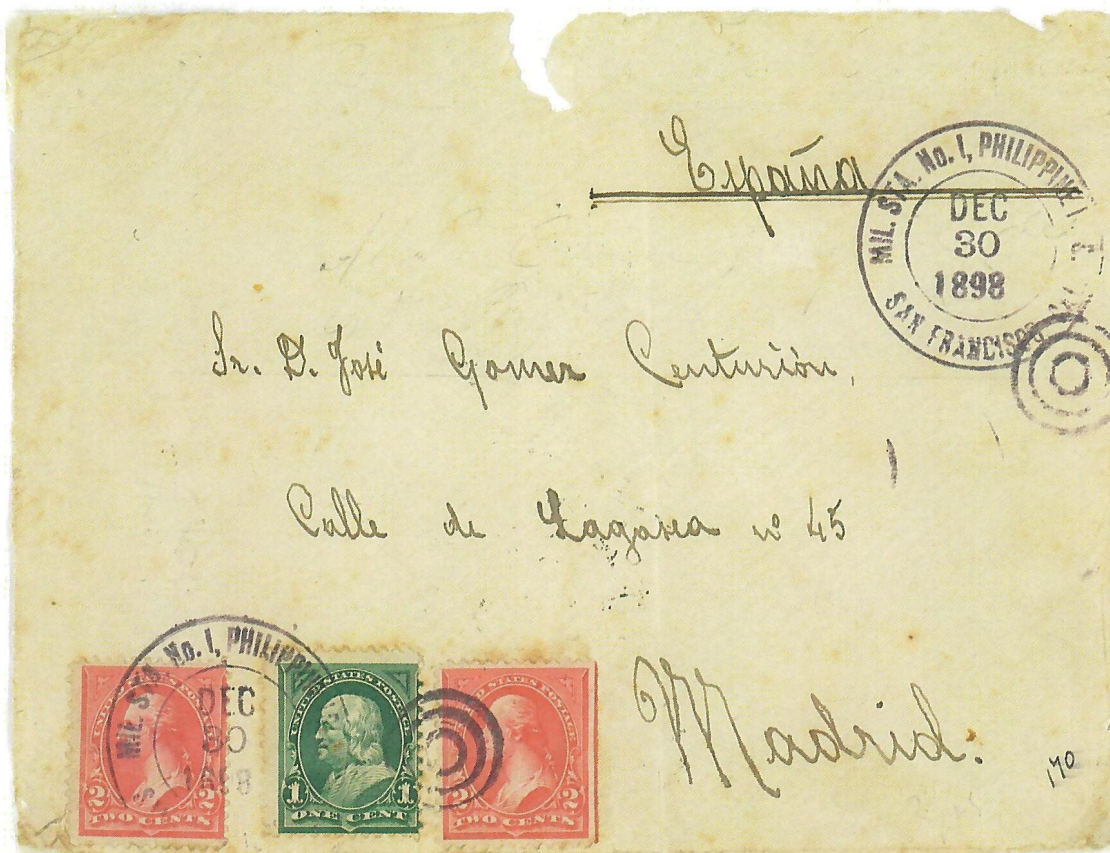 España
MIL. STA. No. 1, PHILIPPINE I
DEC
30
1898
SAN FRANCISCO
Sr. D. José Gomez Centurión,
Calle de Lagasca nº 45
Madrid.
170
MIL. STA. No. 1, PHILIPPINE
DEC
30
1898
UNITED STATES POSTAGE
2 2
TWO CENTS
UNITED STATES POSTAGE
1 1
ONE CENT
UNITED STATES POSTAGE
2 2
TWO CENTS